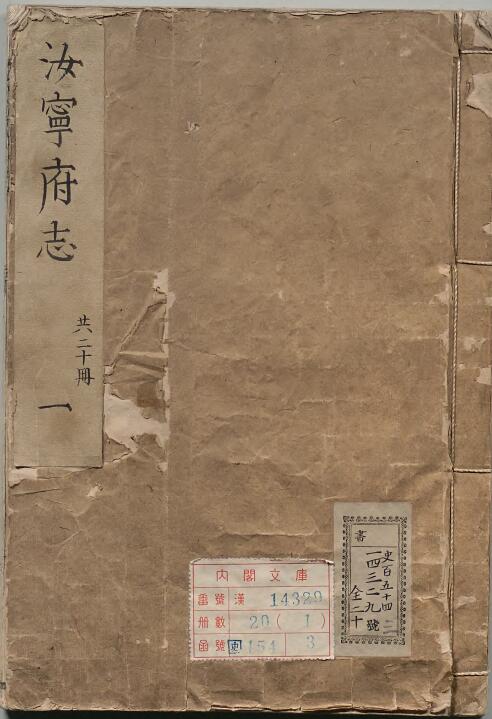 汝寧府志
共二十冊
一
內閣文庫
番號 漢 14329
冊數 20(1)
函號 史 154 3
書
史百五十四
一四三二九號
全二十